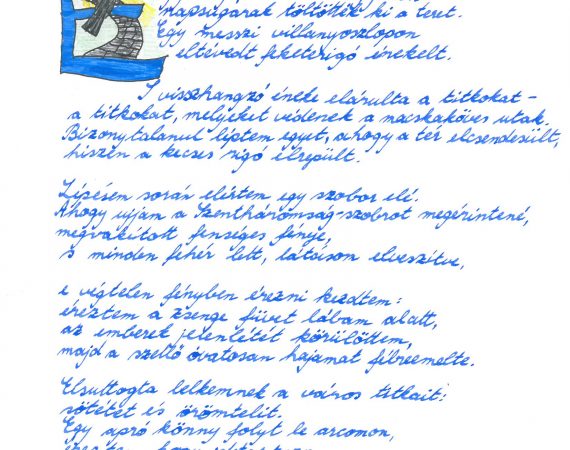 napsugárak töltötték ki a teret.
Egy messzi villanyoszlopon
eltévedt feketerigó énekelt.
S visszhangzó éneke elárulta a titkokat –
a titkokat, melyeket védenek a macskaköves utak.
Bizonytalanul léptem egyet, ahogy a tér elcsendesült,
hiszen a kecses rigó elrepült.
Lépésem során elértem egy szobor elé.
Ahogy ujjam a Szentháromság-szobrot megérintené,
megvakított fenséges fénye,
s minden fehér lett, látásom elveszítve,
e végtelen fényben érezni kezdtem:
éreztem a zsenge füvet lábam alatt,
az emberek jelenlétét körülöttem,
majd a szellő óvatosan hajamat félreemelte.
Elsuttogta lelkemnek a város titkait:
sötétet és örömtelit.
Egy apró könny folyt le arcomon,